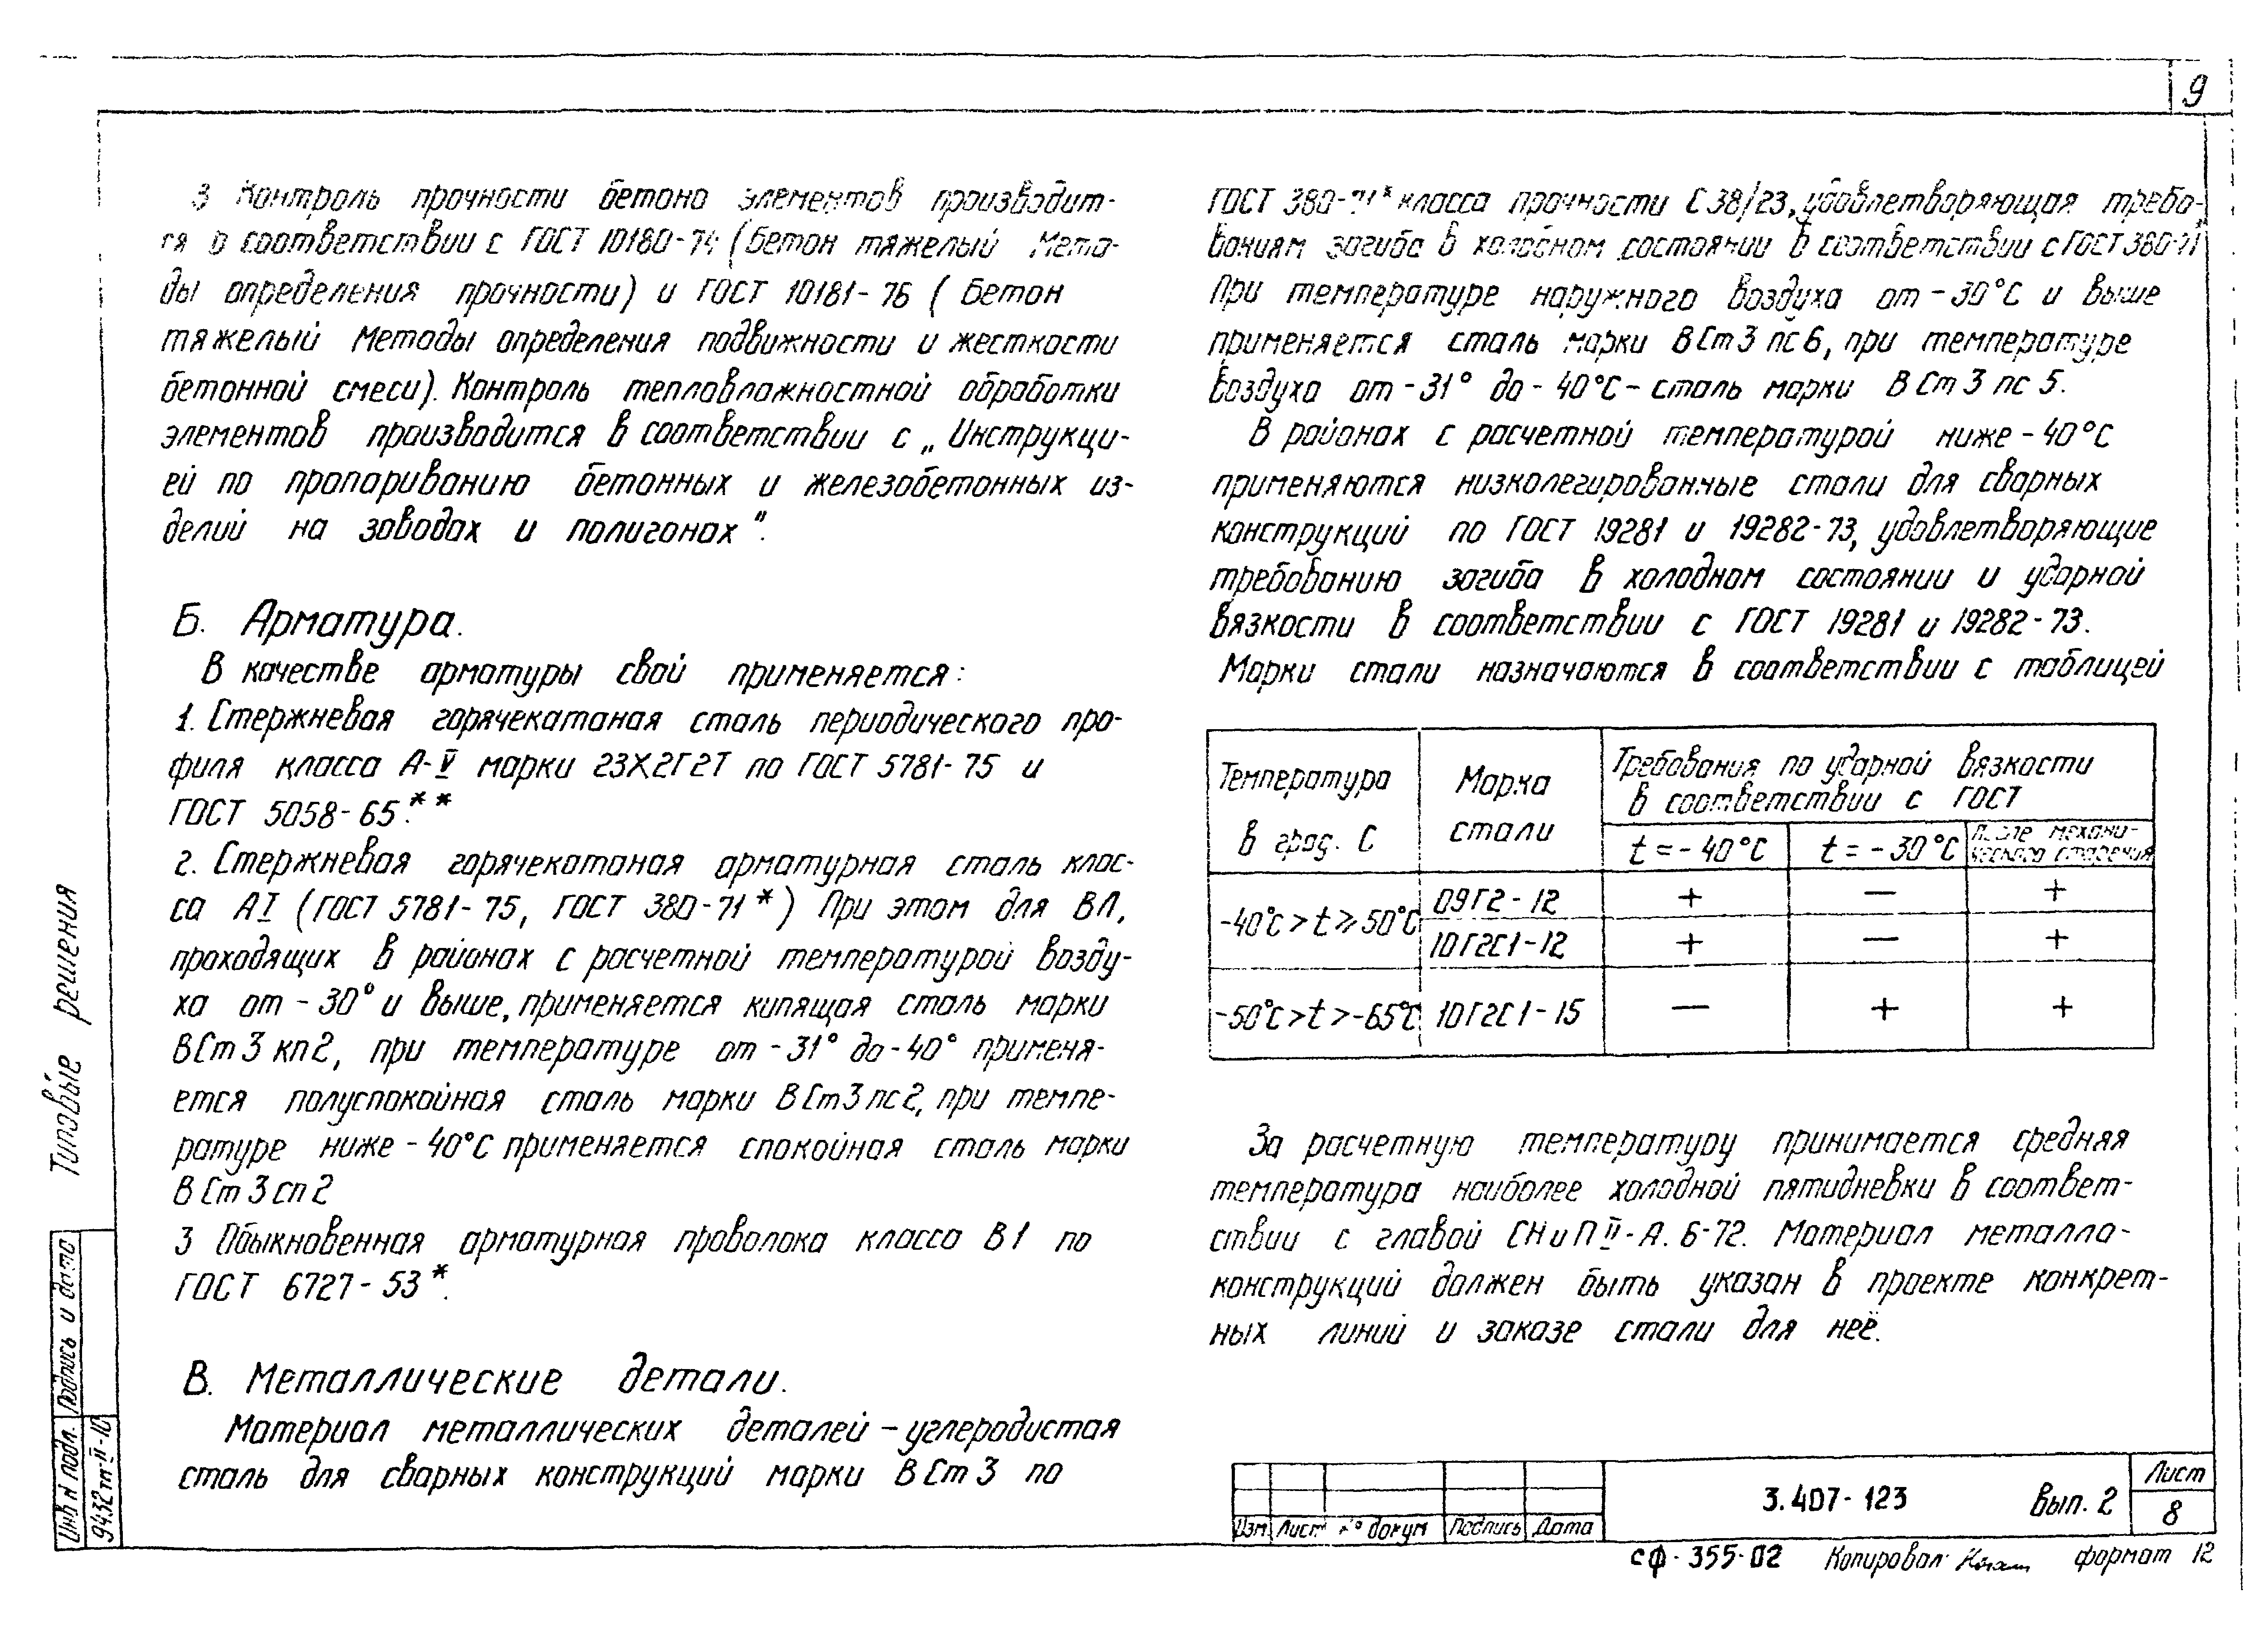 9
3 Контроль прочности бетона элементов производит-
ся в соответствии с ГОСТ 10180-74 (Бетон тяжелый Мето-
ды определения прочности) и ГОСТ 10181-76 ( Бетон
тяжелый Методы определения подвижности и жесткости
бетонной смеси). Контроль тепловлажностной обработки
элементов производится в соответствии с „ Инструкци-
ей по пропариванию бетонных и железобетонных из-
делий на заводах и полигонах ".
Б. Арматура.
В качестве арматуры свай применяется:
1. Стержневая горячекатаная сталь периодического про-
филя класса А-V марки 23Х2Г2Т по ГОСТ 5781-75 и
ГОСТ 5058-65.**
2. Стержневая горячекатаная арматурная сталь клас-
са АI (ГОСТ 5781-75, ГОСТ 380-71*) При этом для ВЛ,
проходящих в районах с расчетной температурой возду-
ха от -30° и выше, применяется кипящая сталь марки
ВСт3кп2, при температуре от -31° до -40° применя-
ется полуспокойная сталь марки ВСт3пс2, при темпе-
ратуре ниже -40°С применяется спокойная сталь марки
ВСт3сп2
3 Обыкновенная арматурная проволока класса В1 по
ГОСТ 6727-53*.
В. Металлические детали.
Материал металлических деталей – углеродистая
сталь для сварных конструкций марки ВСт3 по
ГОСТ 380-71* класса прочности С38/23, удовлетворяющая требо-
ваниям загиба в холодном состоянии в соответствии с ГОСТ 380-71
При температуре наружного воздуха от -30°С и выше
применяется сталь марки ВСт3пс6, при температуре
воздуха от -31° до -40°С – сталь марки ВСт3пс5.
В районах с расчетной температурой ниже -40°С
применяются низколегированные стали для сварных
конструкций по ГОСТ 19281 и 19282-73, удовлетворяющие
требованию загиба в холодном состоянии и ударной
вязкости в соответствии с ГОСТ 19281 и 19282-73.
Марки стали назначаются в соответствии с таблицей
Температура в град. С
Марка стали
Требования по ударной вязкости
в соответствии с ГОСТ
t = -40°С
t = -30°С
После механи-
ческого старения
-40°С > t ⩾ 50°С
09Г2-12 + — +
10Г2С1-12 + — +
-50°С > t > -65°С 10Г2С1-15 — + +
За расчетную температуру принимается средняя
температура наиболее холодной пятидневки в соответ-
ствии с главой СНиП II-А. 6-72. Материал металло-
конструкций должен быть указан в проекте конкрет-
ных линий и заказе стали для неё.
Типовые решения
Подпись и дата
Инв N подл.
9432тм-II-10
Изм Лист N° докум Подпись Дата
3.407-123 Вып. 2
Лист
8
сф-355-02 Копировал: формат 12